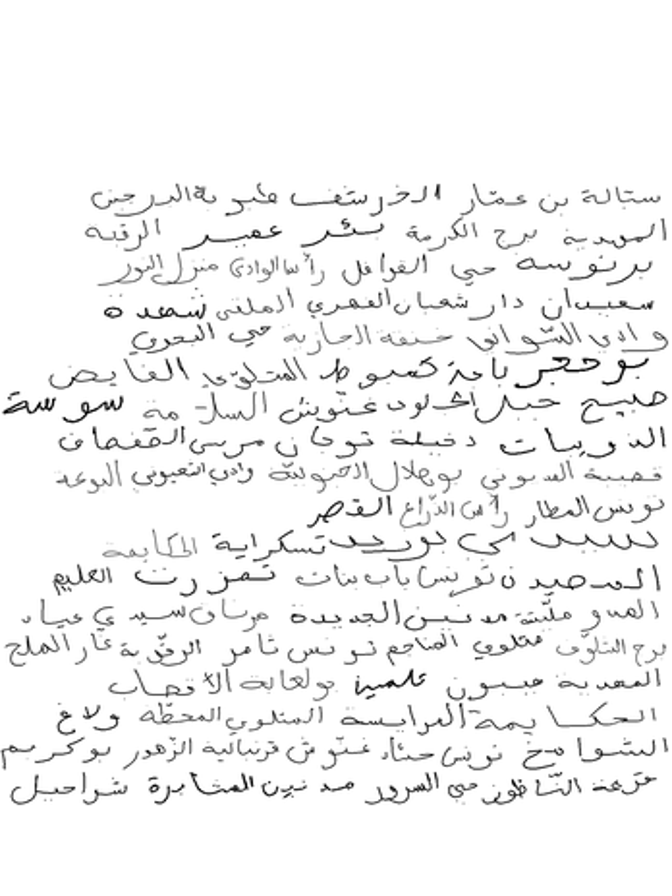 ستالة بن عمّار الخرشف طبربة الدرجين
المهدية برج الكرمة بئر عمير الرقبة
برنوسة حي القوافل رأس الوادي منزل النور
سعيدان دار شعبان الفهري الملقى شهدة
وادي الشواني خنقة الجازية حي البحري
بوحجر باجة كمبوط المتلوي الفايض
صبيح جبل الجلود غنّوش السلامة سوسة
الذويبات دخيلة توجان مرسى القصاف
قصيبة المديوني بوهلال الجنوبية وادي التعبوني
تونس المطار رأس الذراع القصر
سيدي بوزيد تسكراية الحكايمة
تونس باب بنات تمزرت العليم
الجديدة مرناق سيدي عياد
برج التلوّف متلوي المناجم تونس ثامر غار الملح
المهدية جبنون الأقصاب
الحكايمة العرايسة المتلوي المحطّة ولاغ
الشوامخ تونس حشّاد غنّوش قرنبالية الزهور بوكريم
حزعة النّاظور حي السرور مدنين المثابرة شراحيل